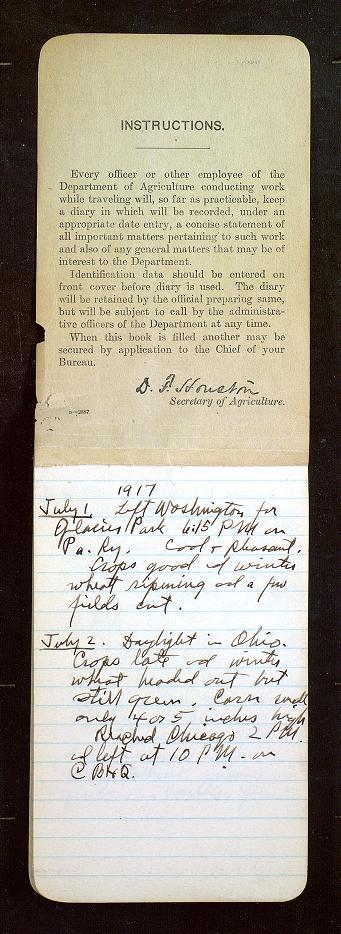 INSTRUCTIONS.
Every officer or other employee of the
Department of Agriculture conducting work
while traveling will, so far as practicable, keep
a diary in which will be recorded, under an
appropriate date entry, a concise statement of
all important matters pertaining to such work
and also of any general matters that may be of
interest to the Department.
Identification data should be entered on
front cover before diary is used. The diary
will be retained by the official preparing same,
but will be subject to call by the administra-
tive officers of the Department at any time.
When this book is filled another may be
secured by application to the Chief of your
Bureau.
D. F. Houston
Secretary of Agriculture.
8—2887
1917
July 1 Left Washington for
Glacier Park 6:15 P.M. on
Pa. Ry. Cool & pleasant.
Crops good and winter
wheat ripening and a few
fields cut.
July 2. Daylight in Ohio.
Crops late and winter
wheat headed out but
still green. Corn small
only 4 or 5 inches high
Reached Chicago 2 P.M.
and left at 10 P.M. on
C B & Q.